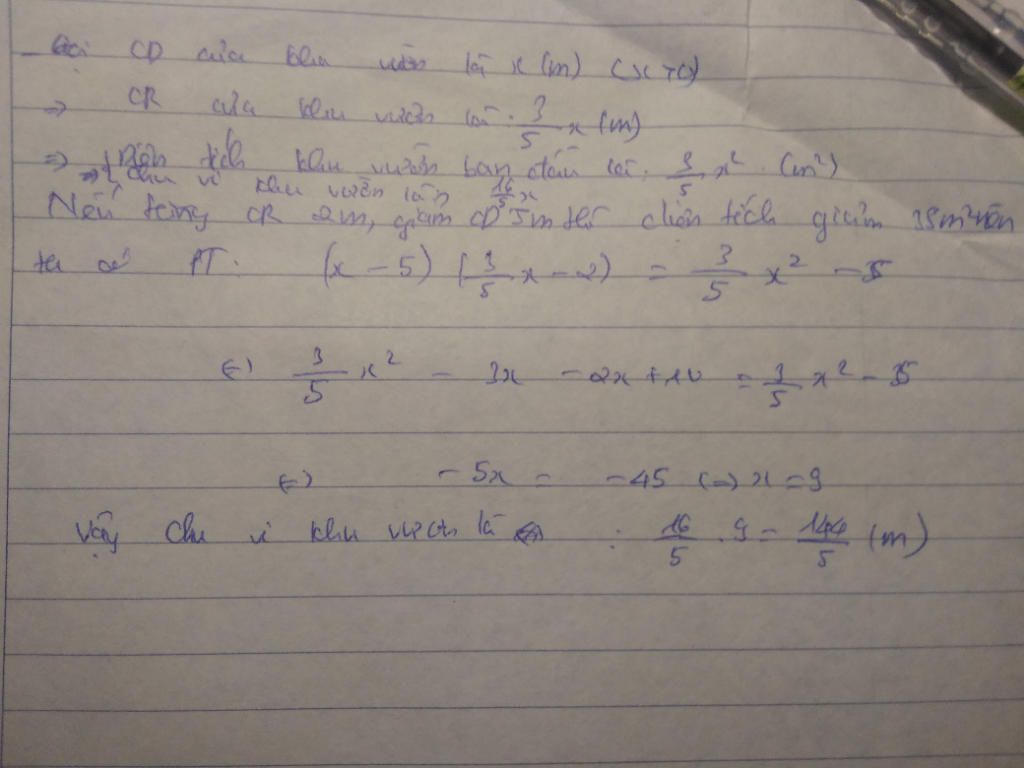 - Gọi CD của khu vườn là x (m) (x > 0)
=> CR của khu vườn là: 3/5 x (m)
=> Diện tích khu vườn ban đầu là: 3/5 x² (m²)
=> chu vi khu vườn là 16/5 x
Nếu tăng CR 2m, giảm CD 5m thì diện tích giảm 35m² nên
ta có PT: (x - 5) (3/5 x - 2) = 3/5 x² - 35
(=) 3/5 x² - 3x - 2x + 10 = 3/5 x² - 35
(=) - 5x = - 45 (=) x = 9
Vậy chu vi khu vườn là : 16/5 . 9 = 144/5 (m)